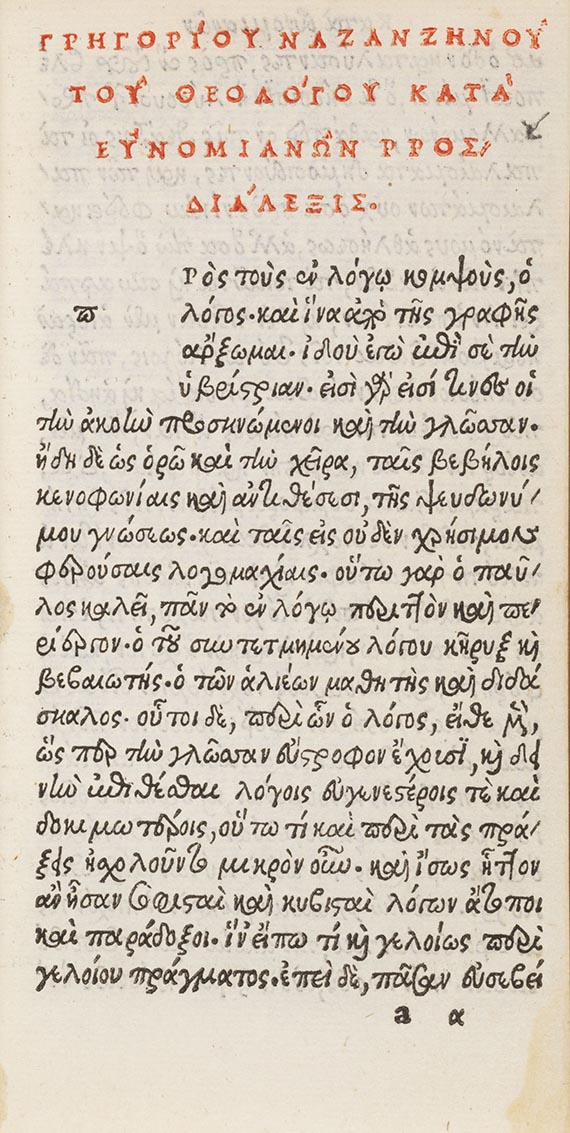 ΓΡΗΓΟΡΙ´ΟΥ ΝΑΖΑΝΖΗΝΟΥ͂
ΤΟΥ͂ ΘΕΟΛΟ´ΓΟΥ ΚΑΤΑ`
ΕΥ᾿ΝΟΜΙΑΝΩ͂Ν ΡΡΟΣ/
ΔΙΑ´ΛΕΞΙΣ.
Ρὸς τοὺς ἐν λόγῳ κομψοὺς, ὁ
π λόγος. καὶ ἵνα ἀπὸ τῆς γραφῆς
ἄρξωμαι. ἰδοὺ ἐγὼ ἐπὶ σὲ τὴν
ὑβρίστριαν. εἰσὶ γὰρ εἰσί τινες οἱ
τὴν ἀκοὴν προσκνώμενοι καὶ τὴν γλῶσσαν.
ἤδη δὲ ὡς ὁρῶ καὶ τὴν χεῖρα, ταῖς βεβήλοις
κενοφωνίαις καὶ ἀντιθέσεσι, τῆς ψευδωνύ/
μου γνώσεως. καὶ ταῖς εἰς οὐδὲν χρήσιμον
φερούσαις λογομαχίαις. οὕτω γαρ ὁ παῦ/
λος καλεῖ, πᾶν τὸ ἐν λόγῳ περιττὸν καὶ πε/
ρίεργον. ὁ τοῦ συντετμημένου λόγου κῆρυξ καὶ
βεβαιωτής. ὁ τῶν ἁλιέων μαθητὴς καὶ διδά
σκαλος. οὗτοι δὲ, περὶ ὧν ὁ λόγος, εἴθε μὲν,
ὥς περ τὴν γλῶσσαν εὔστροφον ἔχουσϊ, καὶ δει
νὴν ἐπιθέσθαι λόγοις εὐγενεστέροις τὲ καὶ
δοκιμωτέροις, οὕτω τί καὶ περὶ τὰς πρά/
ξεις ἠσχολοῦντο μικρὸν οὖν. καὶ ἴσως ἧττον
ἂν ἦσαν σοφισταὶ καὶ κυβισταὶ λόγων ἄτοποι
καὶ παράδοξοι. ἵν εἴπω τί καὶ γελοίως περὶ
γελοίου πράγματος. ἐπεὶ δὲ, πᾶσαν εὐσεβεί
a α